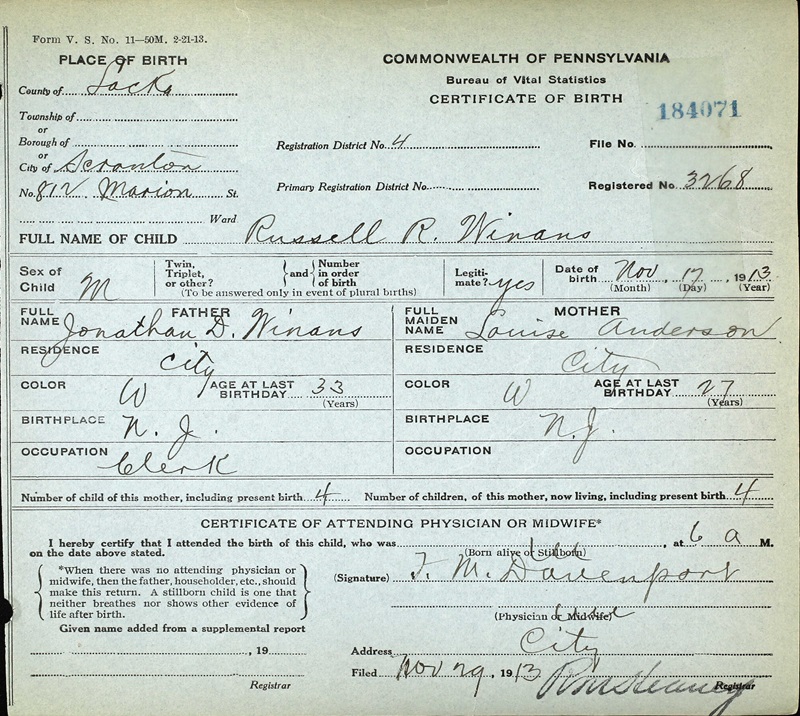 Form V. S. No. 11—50M. 2-21-13.
PLACE OF BIRTH
County of Lacka
Township of
or
Borough of
or
City of Scranton
No. 812 Marion St.
Ward
COMMONWEALTH OF PENNSYLVANIA
Bureau of Vital Statistics
CERTIFICATE OF BIRTH
184071
Registration District No. 4 File No.
Primary Registration District No. Registered No. 3268
FULL NAME OF CHILD Russell R. Winans
Sex of Child M
Twin, Triplet, or other? and Number in order of birth
(To be answered only in event of plural births)
Legiti-mate? yes
Date of birth Nov 17, 1913
(Month) (Day) (Year)
FATHER
FULL NAME Jonathan D. Winans
RESIDENCE City
COLOR W AGE AT LAST BIRTHDAY 33
(Years)
BIRTHPLACE N. J.
OCCUPATION Clerk
MOTHER
FULL MAIDEN NAME Louise Anderson
RESIDENCE City
COLOR W AGE AT LAST BIRTHDAY 27
(Years)
BIRTHPLACE N.J.
OCCUPATION
Number of child of this mother, including present birth 4 Number of children, of this mother, now living, including present birth 4
CERTIFICATE OF ATTENDING PHYSICIAN OR MIDWIFE*
I hereby certify that I attended the birth of this child, who was , at 6 a M.
on the date above stated. (Born alive or Stillborn)
*When there was no attending physician or
midwife, then the father, householder, etc., should
make this return. A stillborn child is one that
neither breathes nor shows other evidence of
life after birth.
(Signature) T. M. Davenport
(Physician or Midwife)
Given name added from a supplemental report
, 19
Registrar
Address City
Filed Nov 29, 1913
Registrar